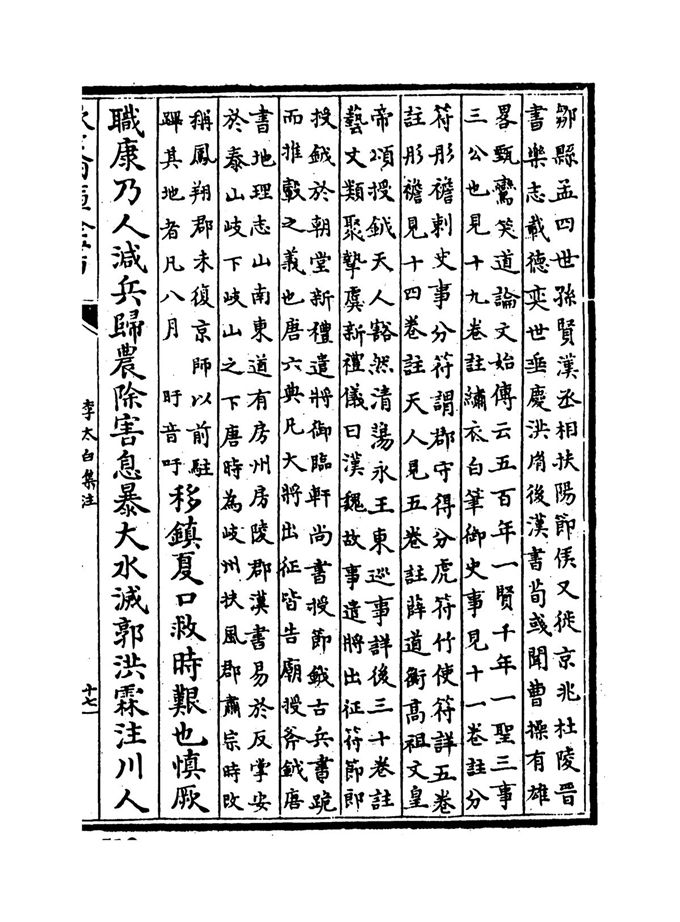 鄒縣孟四世孫賢漢丞相扶陽節侯又徙京兆杜陵晉
書樂志載德奕世垂慶洪胄後漢書荀彧聞曹操有雄
畧甄鸞笑道論文始傳云五百年一賢千年一聖三事
三公也見十九卷註繡衣白筆御史事見十一卷註分
符彤襜刺史事分符謂郡守得分虎符竹使符詳五卷
註彤襜見十四卷註天人見五卷註薛道衡高祖文皇
帝頌授鉞天人豁然清蕩永王東廵事詳後三十卷註
藝文類聚摯虞新禮儀曰漢魏故事遣將出征符節郎
授鉞於朝堂新禮遣將御臨軒尚書授節鉞古兵書跪
而推轂之義也唐六典凡大將出征皆告廟授斧鉞唐
書地理志山南東道有房州房陵郡漢書易於反掌安
於泰山岐下岐山之下唐時為岐州扶風郡肅宗時改
稱鳳翔郡未復京師以前駐
蹕其地者凡八月　盱音吁
移鎮夏口救時艱也慎厥
職康乃人減兵歸農除害息暴大水滅郭洪霖注川人
李太白集注
十七